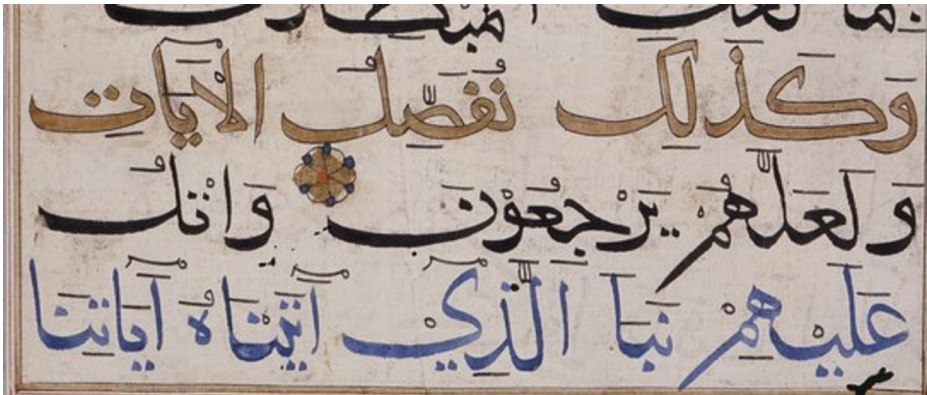 وَكَذَلِكَ نُفَصِّلُ الْآيَاتِ
وَلَعَلَّهُمْ يَرْجِعُوْنَ وَاتْلُ
عَلَيْهِمْ نَبَأَ الَّذِيْ آتَيْنَاهُ آيَاتِنَا